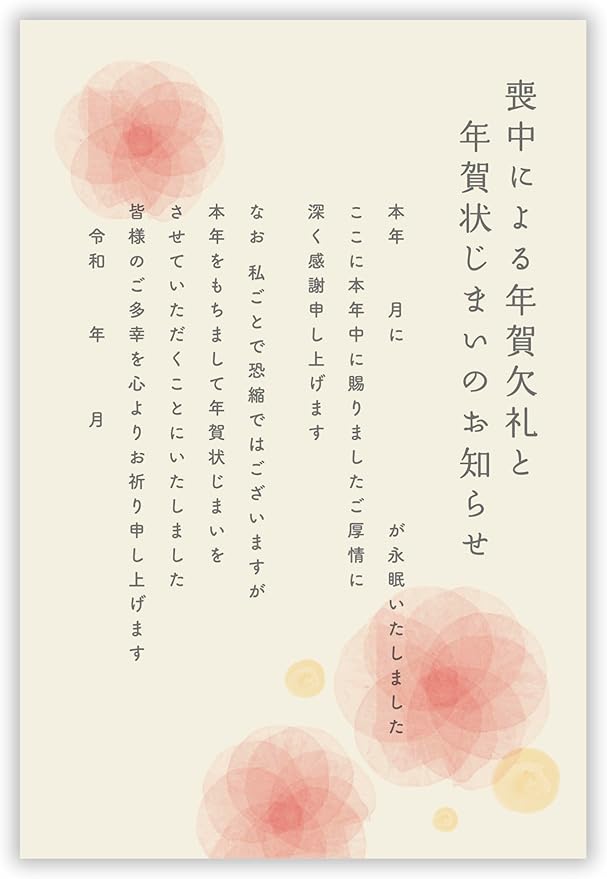 喪中による年賀欠礼と
年賀状じまいのお知らせ
本年　月に　　　が永眠いたしました
ここに本年中に賜りましたご厚情に
深く感謝申し上げます
なお 私ごとで恐縮ではございますが
本年をもちまして年賀状じまいを
させていただくことにいたしました
皆様のご多幸を心よりお祈り申し上げます
令和　年　月